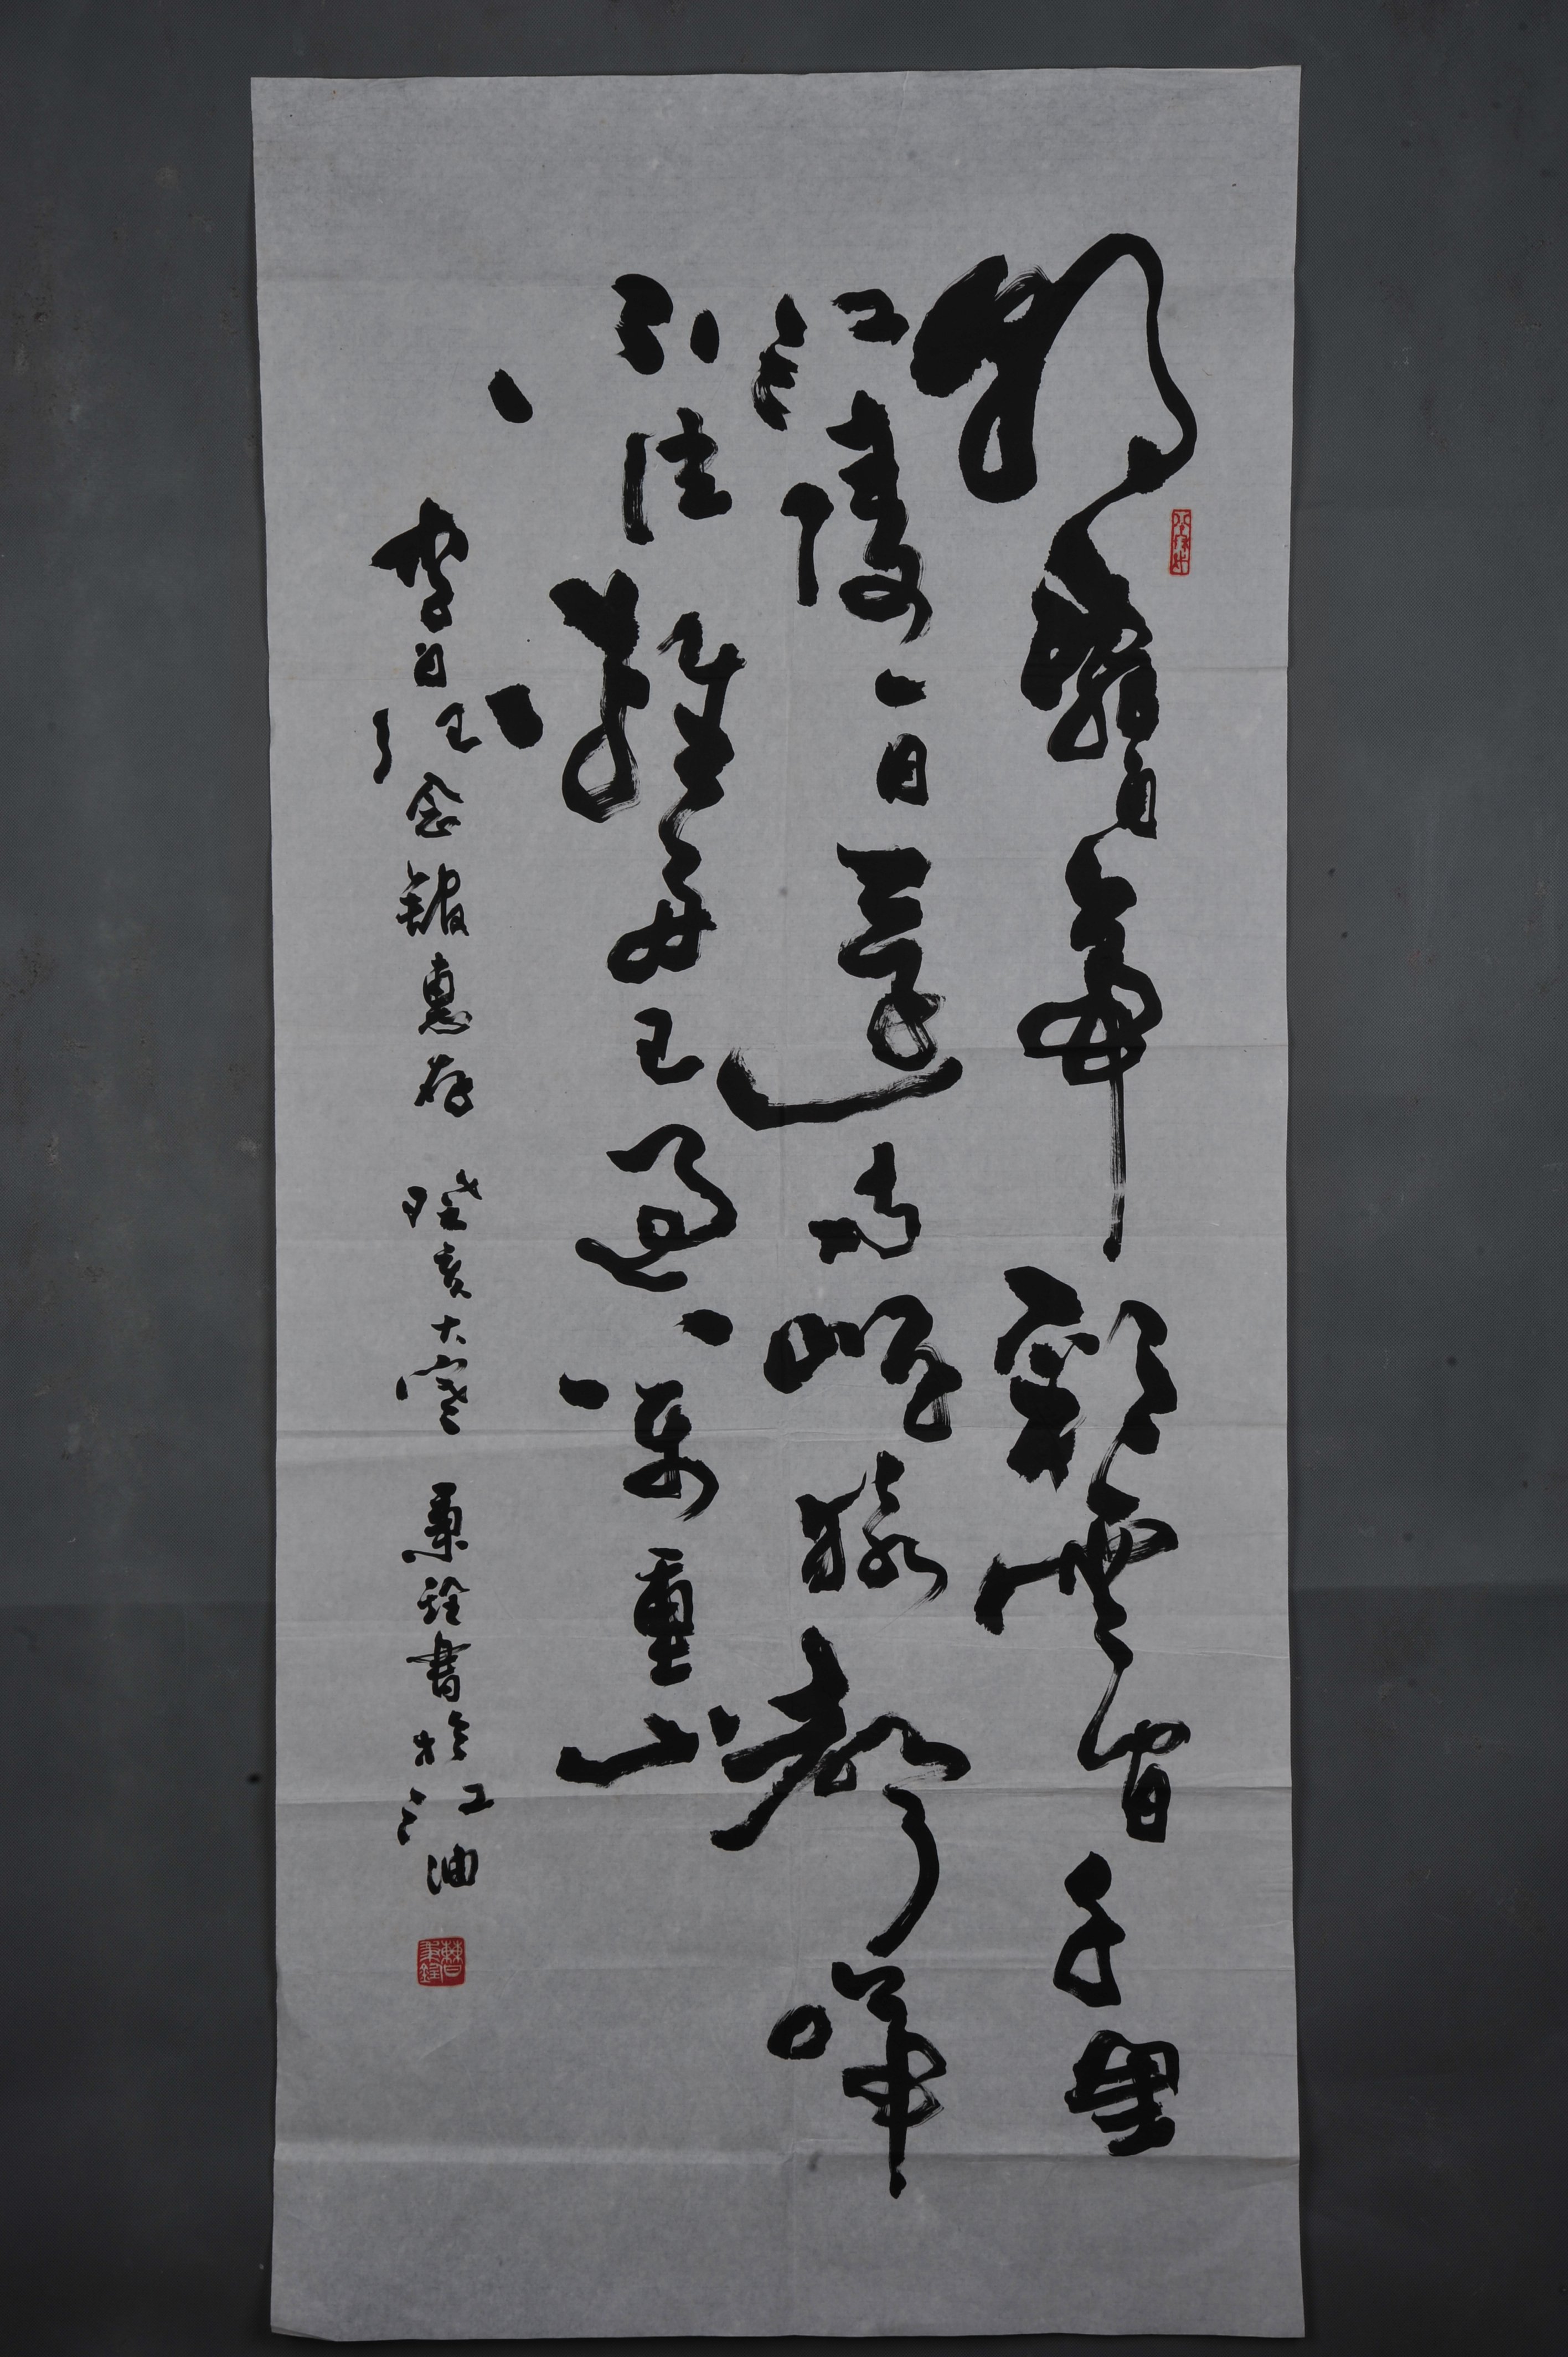 朝辭白帝彩雲間千里
江陵一日還兩岸猿聲啼
不住輕舟已過萬重山
李白紀念館惠存 癸亥大寒 秉銓書於江油